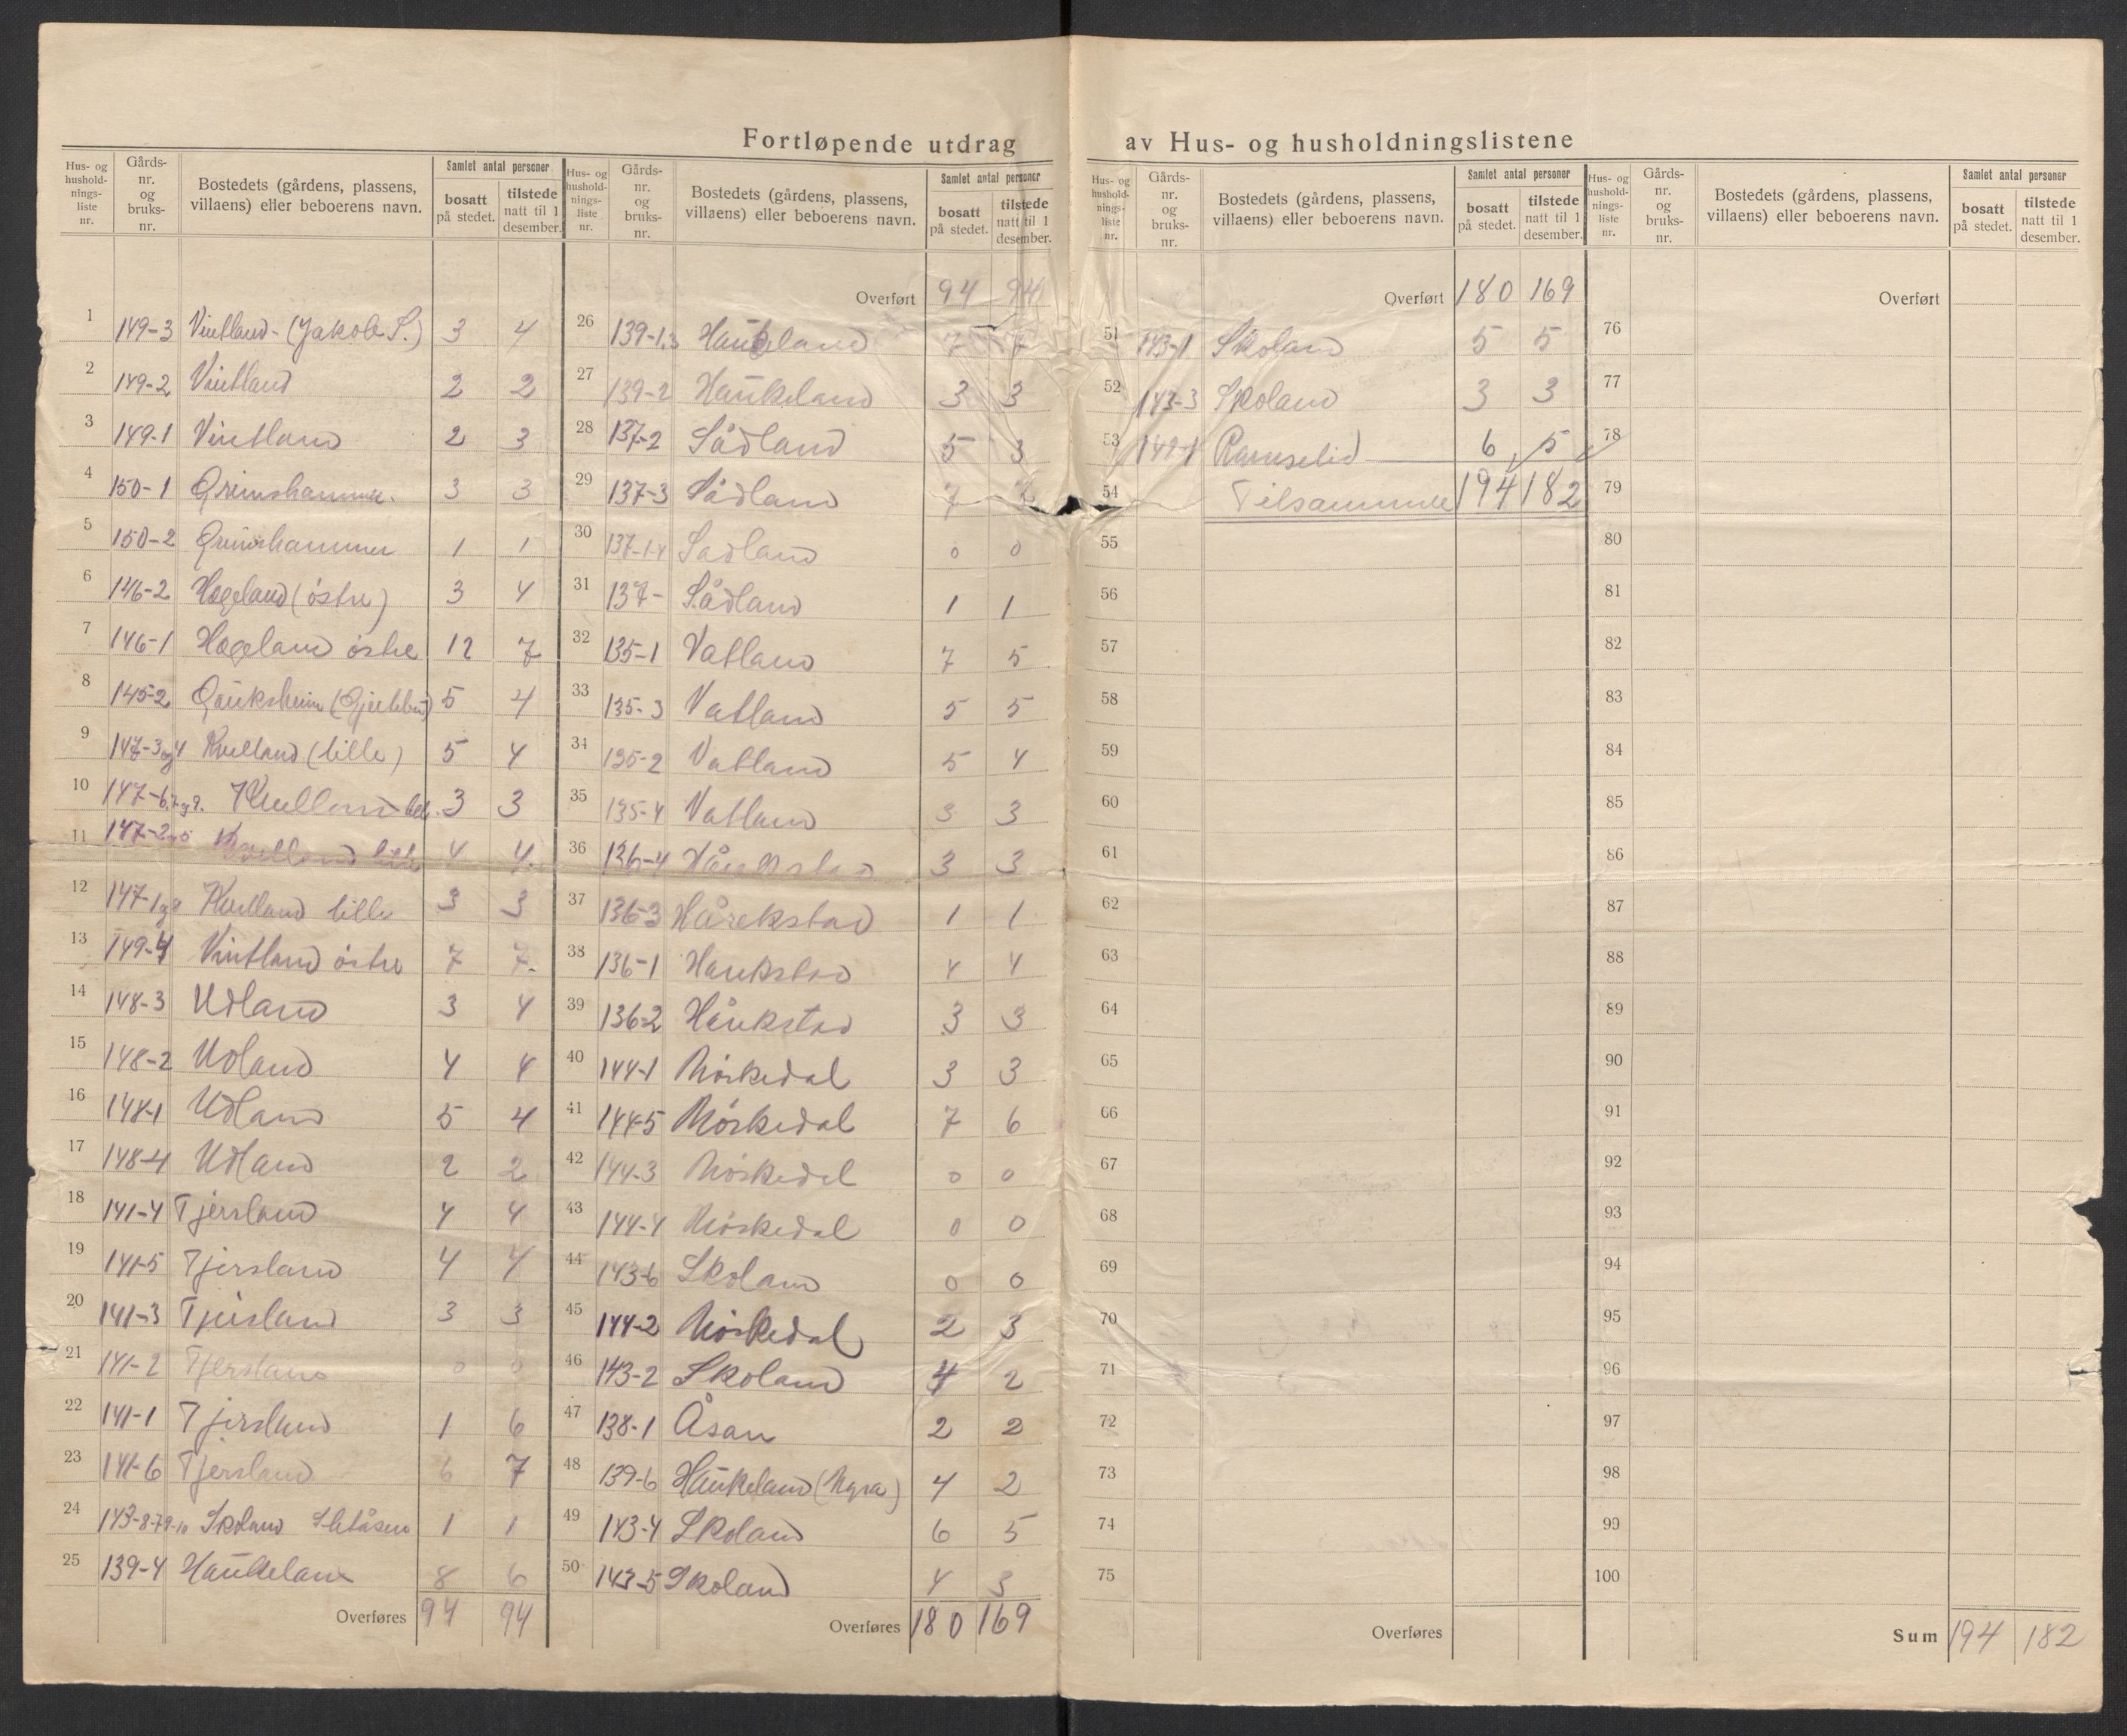 Fortløpende utdrag av Hus- og husholdningslistene
Hus- og husholdnings-liste nr. | Gårds-nr. og bruks-nr. | Bostedets (gårdens, plassens, villaens) eller beboerens navn. | Samlet antal personer | bosatt på stedet. | tilstede natt til 1 desember.
1 149-3 Vintland-(Jakob S.) 3 4
2 149-2 Vintland 2 2
3 149-1 Vintland 2 3
4 150-1 Greinshammer. 3 3
5 150-2 Greinshammer 1 1
6 146-2 Hægeland (östre) 3 4
7 146-1 Hægeland östre 12 7
8 145-2 Gaüksheim 5 4
9 147-3og4 Kvelland (lille) 5 4
10 147-6,7og9. Kvelland lill. 3 3
11 Kvelland lille 4 4.
12 Kvelland lille 3 3
13 149-4 Vintland östre 7 7.
14 148-3 Udland 3 4
15 148-2 Udland 4 4
16 148-1 Udland 5 4
17 148-4 Udland 2 2
18 141-4 Tjersland 4 4
19 141-5 Tjersland 4 4
20 141-3 Tjersland 3 3
21 141-2 Tjersland 0 0
22 141-1 Tjersland 1 6
23 141-6 Tjersland 6 7
24 Skoland 1 1
25 139-4 Haükeland 8 6
Overføres 94 94
Hus- og husholdnings-liste nr. | Gårds-nr. og bruks-nr. | Bostedets (gårdens, plassens, villaens) eller beboerens navn. | Samlet antal personer | bosatt på stedet. | tilstede natt til 1 desember.
Overført 94 94
26 139-1,3 Haükeland 7 7
27 139-2 Haükeland 3 3
28 137-2 Sådland 5 3
29 137-3 Sådland 7
30 Sadland 0 0
31 137- Sådland 1 1
32 135-1 Vatland 7 5
33 135-3 Vatland 5 5
34 135-2 Vatland 5 4
35 135-4 Vatland 3 3
36 136-4 Hårekstad 3 3
37 136-3 Hårekstad 1 1
38 136-1 Harekstad 4 4
39 136-2 Hårekstad 3 3
40 144-1 Möskedal 3 3
41 144-5 Möskedal 7 6
42 144-3 Möskedal 0 0
43 144-4 Möskedal 0 0
44 143-6 Skoland 0 0
45 144-2 Möskedal 2 3
46 143-2 Skoland 4 2
47 138-1 Åsan 2 2
48 139-6 Haükeland (Myra) 4 2
49 143-4 Skoland 6 5
50 143-5 Skoland 4 3
Overføres 180 169
Hus- og husholdnings-liste nr. | Gårds-nr. og bruks-nr. | Bostedets (gårdens, plassens, villaens) eller beboerens navn. | Samlet antal personer | bosatt på stedet. | tilstede natt til 1 desember.
Overført 180 169
51 143-1 Skoland 5 5
52 143-3 Skoland 3 3
53 Ramselid 6 5
54 Tilsammen 194 182
55
56
57
58
59
60
61
62
63
64
65
66
67
68
69
70
71
72
73
74
75
Overføres
Hus- og hushold-nings-liste nr. | Gårds-nr. og bruks-nr. | Bostedets (gårdens, plassens, villaens) eller beboerens navn. | Samlet antal personer | bosatt på stedet. | tilstede natt til 1 desember.
Overført
76
77
78
79
80
81
82
83
84
85
86
87
88
89
90
91
92
93
94
95
96
97
98
99
100
Sum 194 182